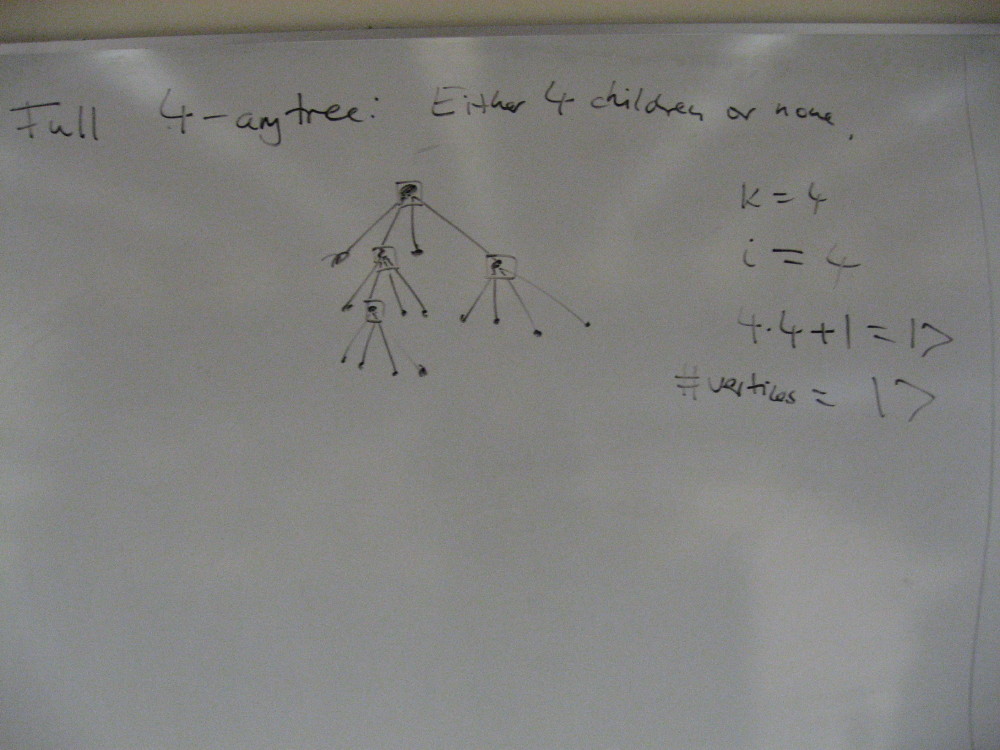 Full 4-ary tree: Either 4 children or none.
k = 4
i = 4
4·4+1 = 17
#vertices = 17